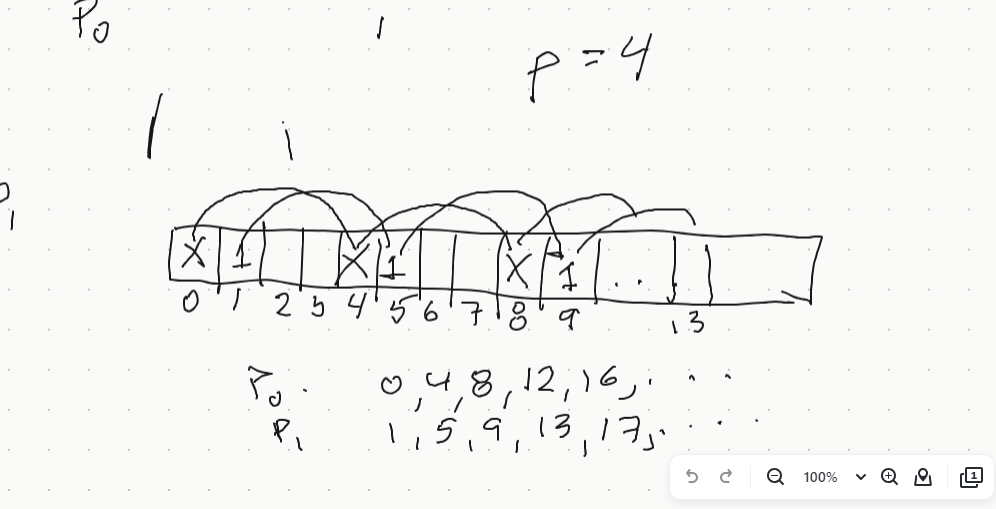 P0
1
p = 4
/ i
P1
X 1 X 1 X 1 . .
0 1 2 3 4 5 6 7 8 9 13
P0 . 0, 4, 8, 12, 16, . . .
P1 1, 5, 9, 13, 17, . . . .
100%
1